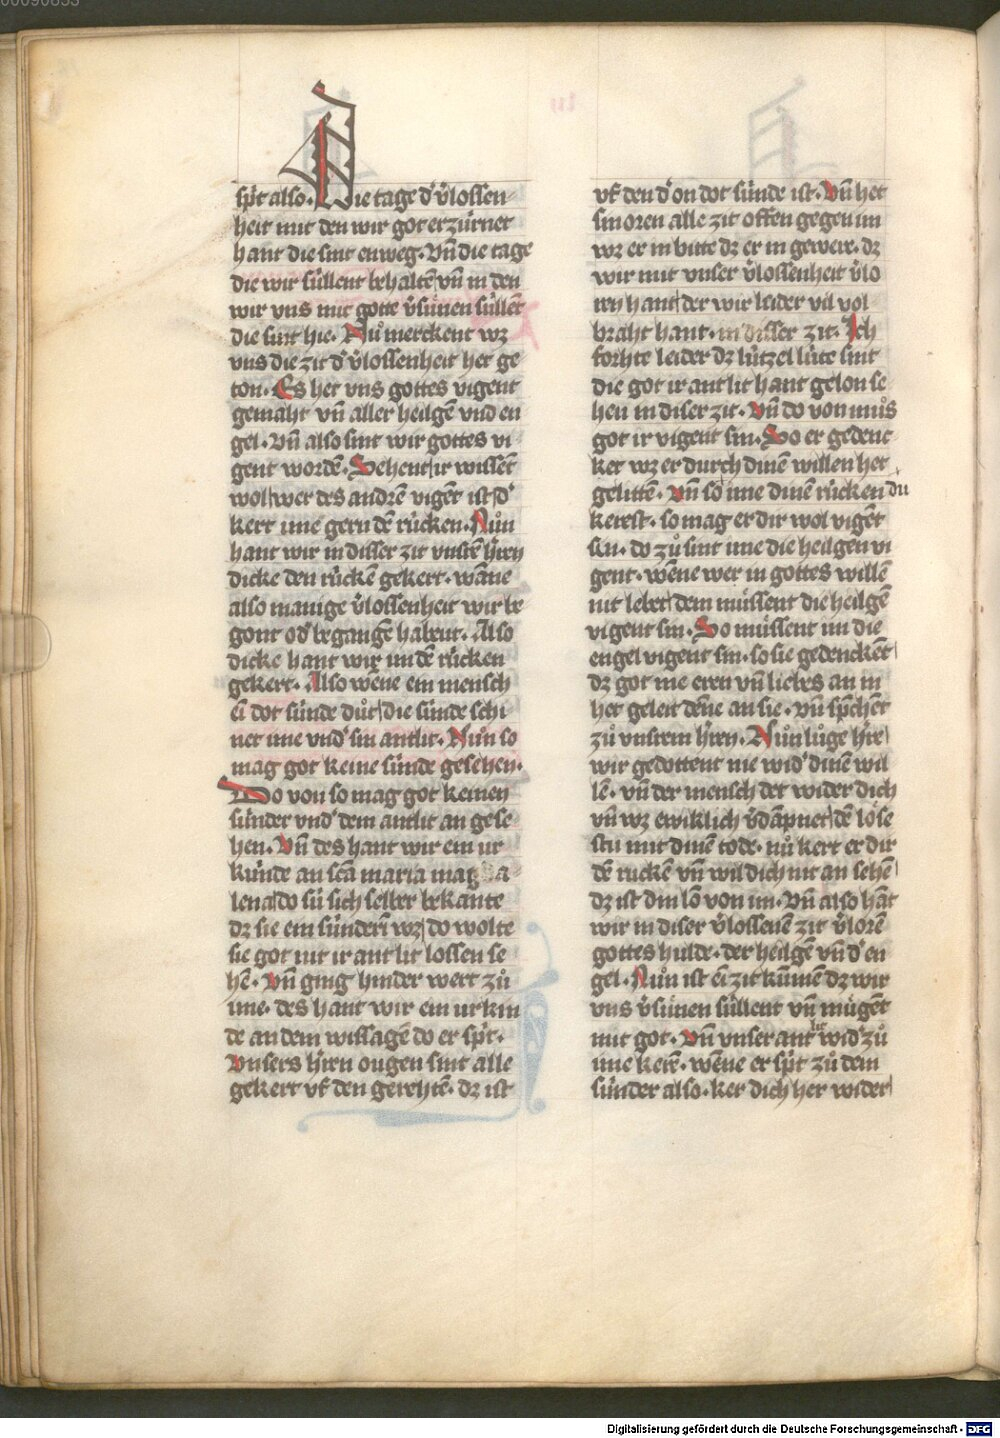 spͬt also. Die tage dͬ v̾lossen
heit mit den wir got erzürnet
hant die sint enweg. Vn̄ die tage
die wir süllent behaltē vn̄ in den
wir vns mit gotte v̾sünen süllēt
die sint hie. Nu̇ merckent wz
vns die zit dͬ v̾lossenheit het ge
ton. Es het vns gottes vigent
gemaht vn̄ aller heilgē vnd en
gel. Vn̄ also sint wir gottes vi
gent wordē. Sehent ir wissēt
wol wer des andrē vigēt ist dͬ
kert ime gern dē rücken. Nůn
hant wir in disser zit vnsrē hͬrn
dicke den rückē gekert. wāne
also manige v̾lossenheit wir be
gont odͬ begangē habent. Also
dicke hant wir im dē rücken
gekert. Also wēne ein mensch
ei dot sünde důt die sünde schi
net ime vndͬ sin antlit. Nůn so
mag got keine sünde gesehen.
Do von so mag got keinen
sünder vndͬ dem antlit an gese
hen. Vn̄ des hant wir ein ur
künde an scā maria mag da
lena do sü sich selber bekante
dz sie ein sünderī wz do wolte
sie got nit ir ant lit lossen se
hē. Vn̄ ging hinder wert zů
ime. des hant wir ein urkün
de an dem wissagē do er spͬt.
Vnsers hͬrn ougen sint alle
gekert vf den gerehtē. dz ist
vf den dͬ on dot sünde ist. Vn̄ het
sin oren alle zit offen gegen im
wz er in bitte dz er in gewere. dz
wir mit vnser v̾lossenheit v̾lo
ren hant der wir leider vil vol
braht hant. in disser zit. Ich
förhte leider dz lützel lüte sint
die got ir antlit hant gelon se
hen in diser zit. Vn̄ do von můs
got ir vigent sin. So er gedenc
ket wz er durch dinē willen het
gelittē. Vn̄ so ime dinē rücken du
kerest. so mag er dir wol vigēt
sin. do zů sint ime die heilgen vi
gent. wēne wer in gottes willē
nit lebet dem müssent die heilgē
vigent sin. So müssent im die
engel vigent sin. so sie gedenckēt
dz got me eren vn̄ liebes an in
het geleit dēne an sie. Vn̄ spͬchēt
zů vnserm hͬren. Nůn lůge hͬre
wir gedottent nie widͬ dinē wil
lē. vn̄ der mensch der wider dich
vn̄ wz ewiklich v̾dāpnet dē löse
stu mit dinē tode. nů kert er dir
dē rucken vn̄ wil dich nit an sehē
dz ist din lō von im. Vn̄ also hāt
wir in diser v̾lossenē zit v̾lorē
gottes hulde. der heilgē vn̄ dͬ en
gel. Nůn ist ei zit kūmē dz wir
vns v̾sünen süllent vn̄ mügēt
mit got. Vn̄ vnser ant lit widͬ zů
ime kerē. wēne er spͬt zů dem
sünder also. ker dich her wider
Digitalisierung gefördert durch die Deutsche Forschungsgemeinschaft - DFG